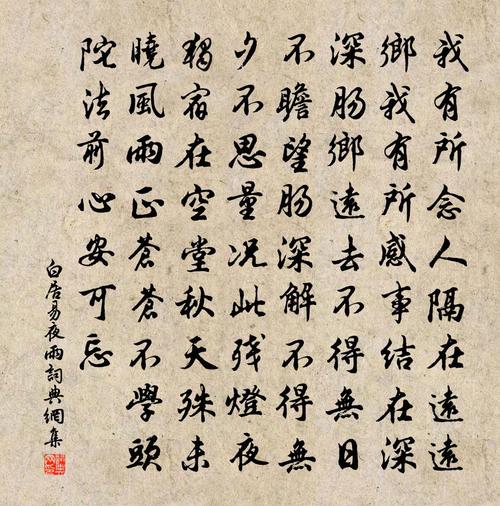 我有所念人隔在遠遠
鄉我有所感事結在深
深肠鄉遠去不得無日
不瞻望肠深解不得無
夕不思量况此残燈夜
獨宿在空堂秋天殊未
曉風雨正蒼蒼不學頭
陀法前心安可忘
白居易夜雨詞典網集